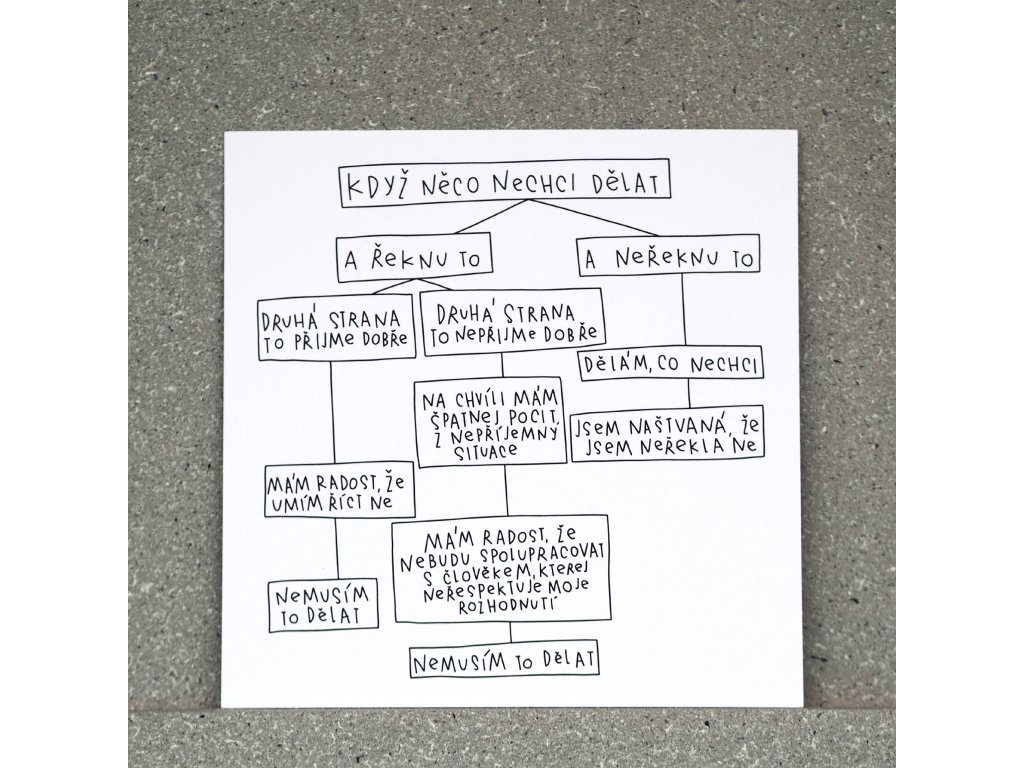 KDYŽ NĚCO NECHCI DĚLAT
A ŘEKNU TO
A NEŘEKNU TO
DRUHÁ STRANA
TO PŘIJME DOBŘE
DRUHÁ STRANA
TO NEPŘIJME DOBŘE
DĚLÁM, CO NECHCI
NA CHVÍLI MÁM
ŠPATNEJ POCIT,
Z NEPŘÍJEMNÝ
SITUACE
JSEM NAŠTVANÁ, ŽE
JSEM NEŘEKLA NE
MÁM RADOST, ŽE
UMÍM ŘÍCT NE
MÁM RADOST, ŽE
NEBUDU SPOLUPRACOVAT
S ČLOVĚKEM, KTEREJ
NEŘESPEKTUJE MOJE
ROZHODNUTÍ
NEMUSÍM
TO DĚLAT
NEMUSÍM TO DĚLAT